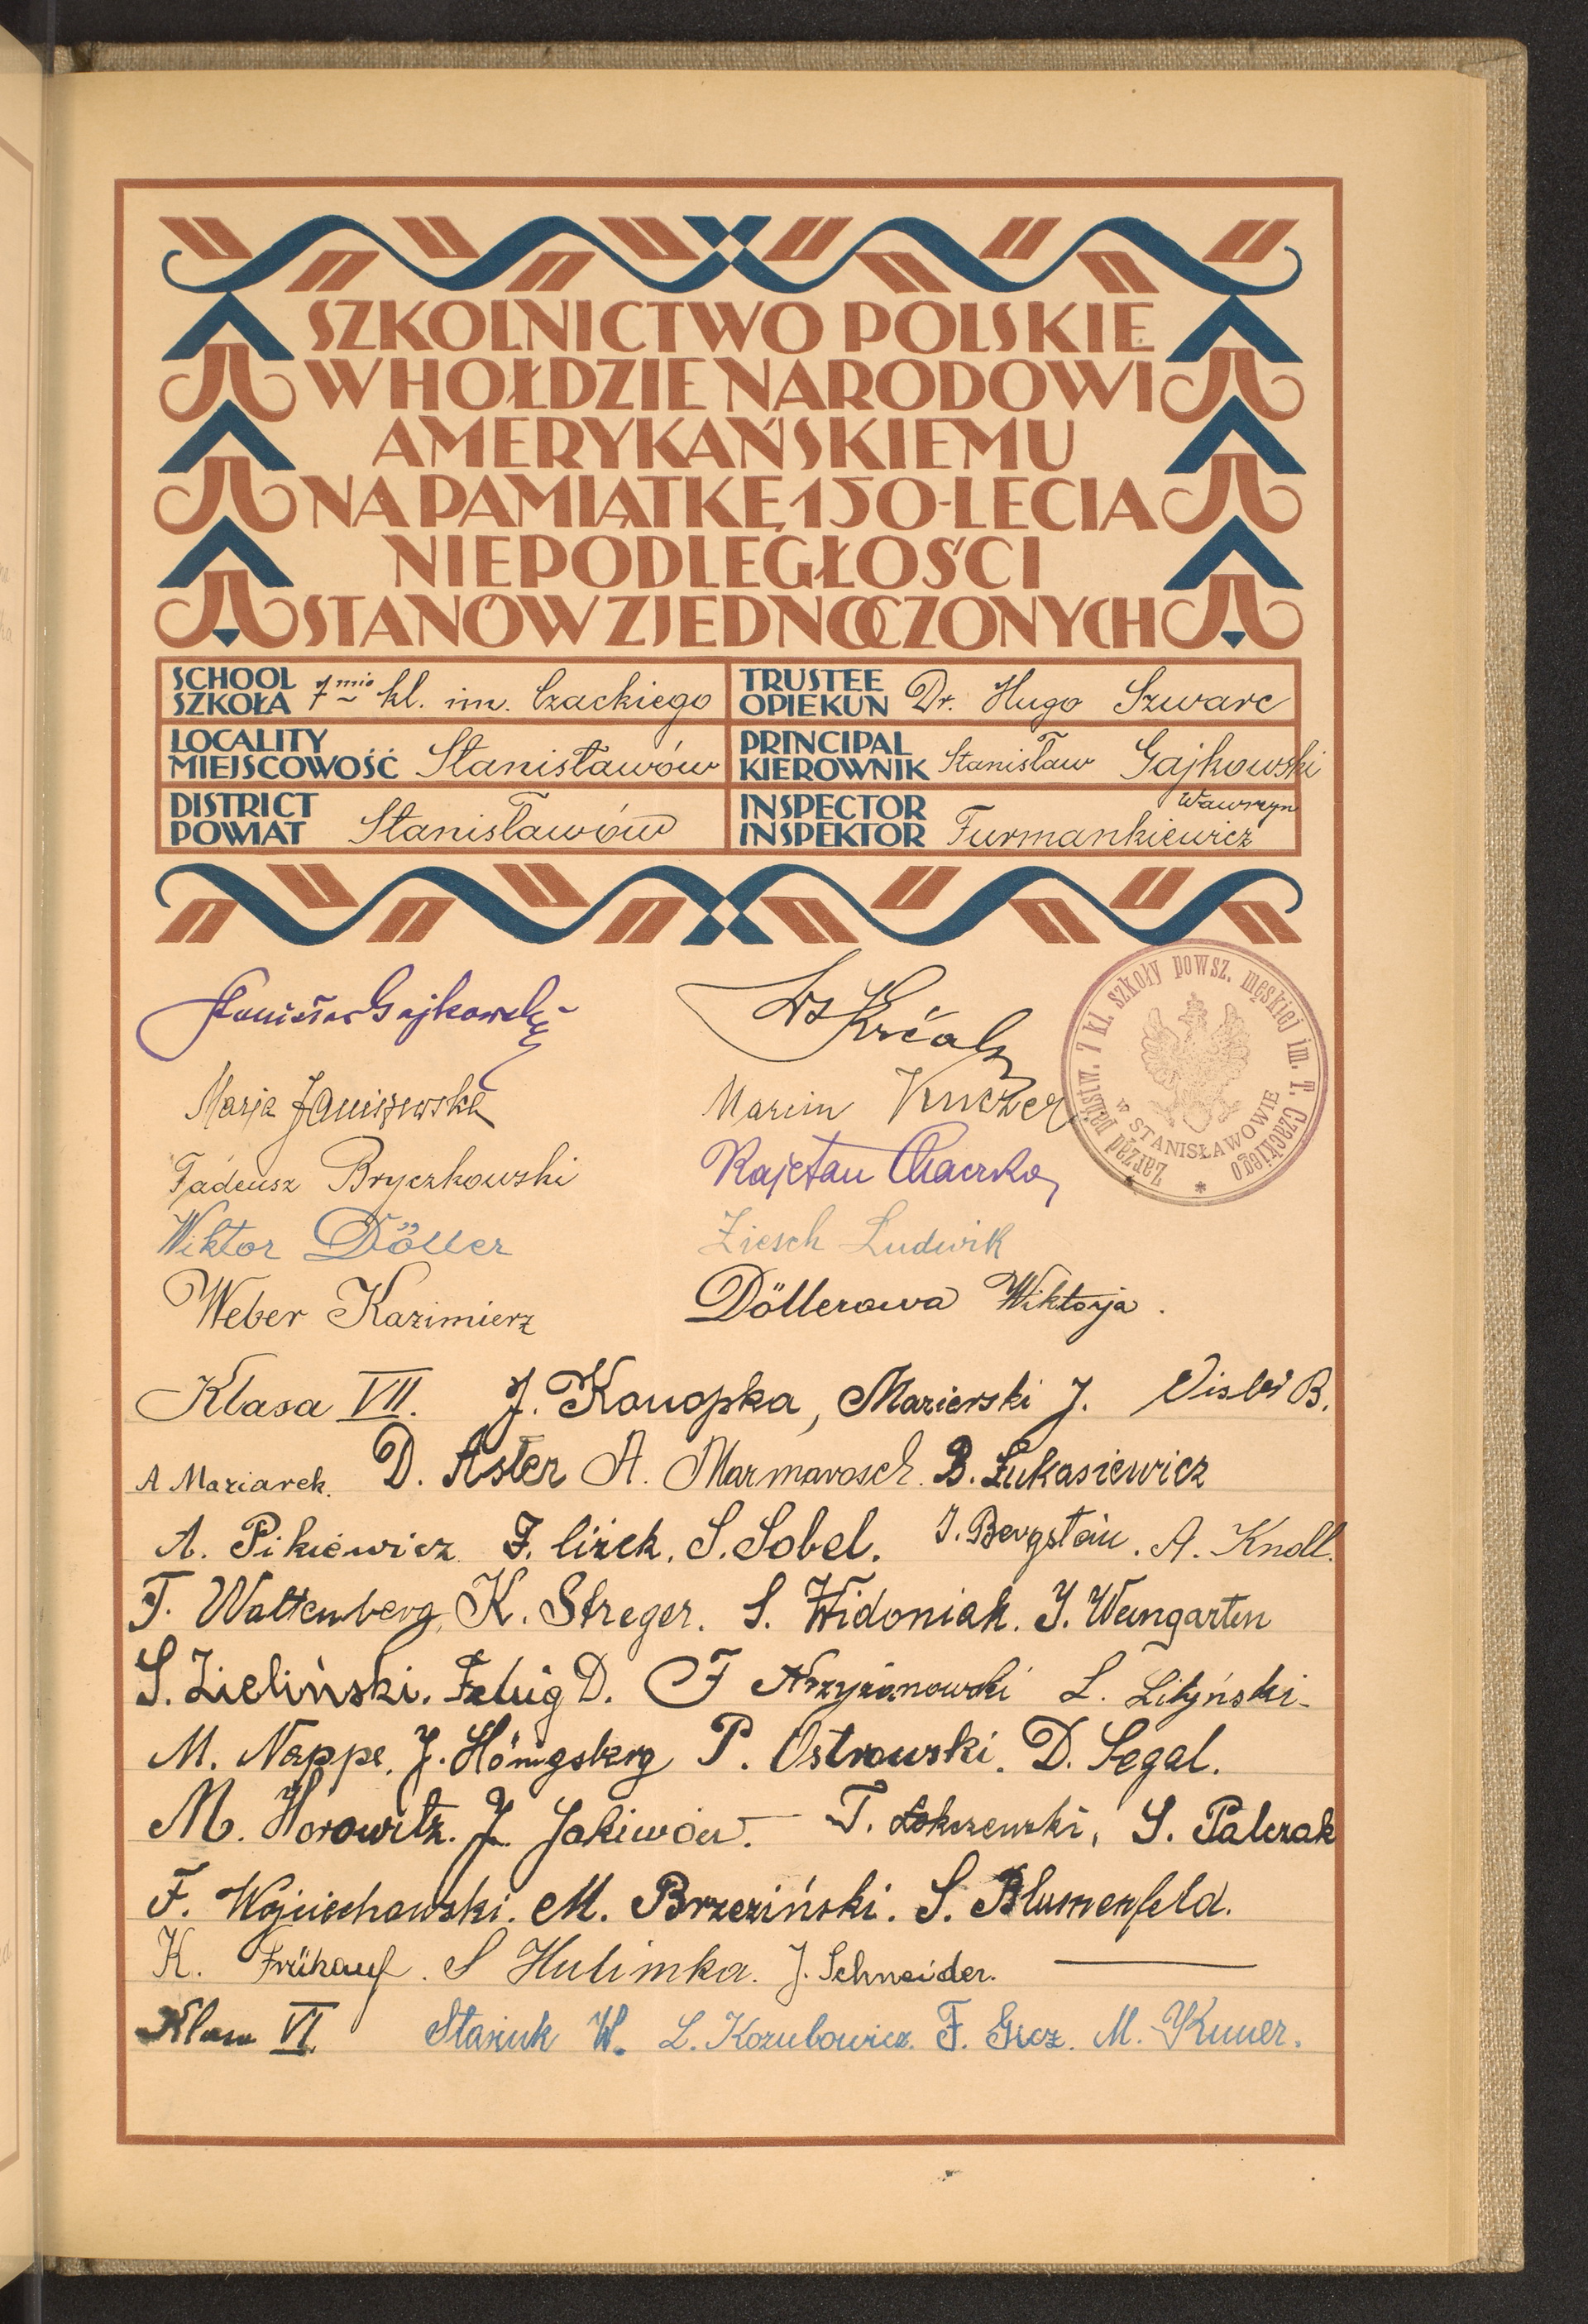 SZKOLNICTWO POLSKIE
W HOŁDZIE NARODOWI
AMERYKAŃSKIEMU
NA PAMIĄTKĘ 150-LECIA
NIEPODLEGŁOŚCI
STANÓW ZJEDNOCZONYCH
SCHOOL SZKOŁA 7mio kl. im. Czackiego
TRUSTEE OPIEKUN Dr. Hugo Szwarc
LOCALITY MIEJSCOWOŚĆ Stanisławów
PRINCIPAL KIEROWNIK Stanisław Gajkowski
DISTRICT POWIAT Stanisławów
INSPECTOR INSPEKTOR Wawrzyn Furmankiewicz
Zarząd państw. 7 kl. szkoły powsz. męskiej im. T. Czackiego
w STANISŁAWOWIE
Stanisław Gajkowski
Marja Janiszewska Marcin
Tadeusz Bryczkowski Kajetan
Wiktor Döller Ziesch Ludwik
Weber Kazimierz Döllerowa Wiktorja.
Klasa VII. J. Konopka, Mazierski J. B.
A Maziarek. D. Aster A. Marmarosch. B. Łukasiewicz
A. Pikiewicz. F. Ciżek. S. Sobel. J. Bergstein. A. Knoll.
T. Wattenberg. K. Streger. S. Widoniak. J. Weingarten
S. Zieliński. D. F L. Lityński
M. Nappe. J. Hönigsberg P. Ostrowski. D. Segal.
M. Horowitz. J. Jakiwów. T. S. Palczak
F. Wojciechowski. M. Brzeziński. S. Blumenfeld.
K. Frühauf. S Hulimka. J. Schneider.
Klasa VI. Stasiuk W. L. Kozubowicz. F. Giez. M.